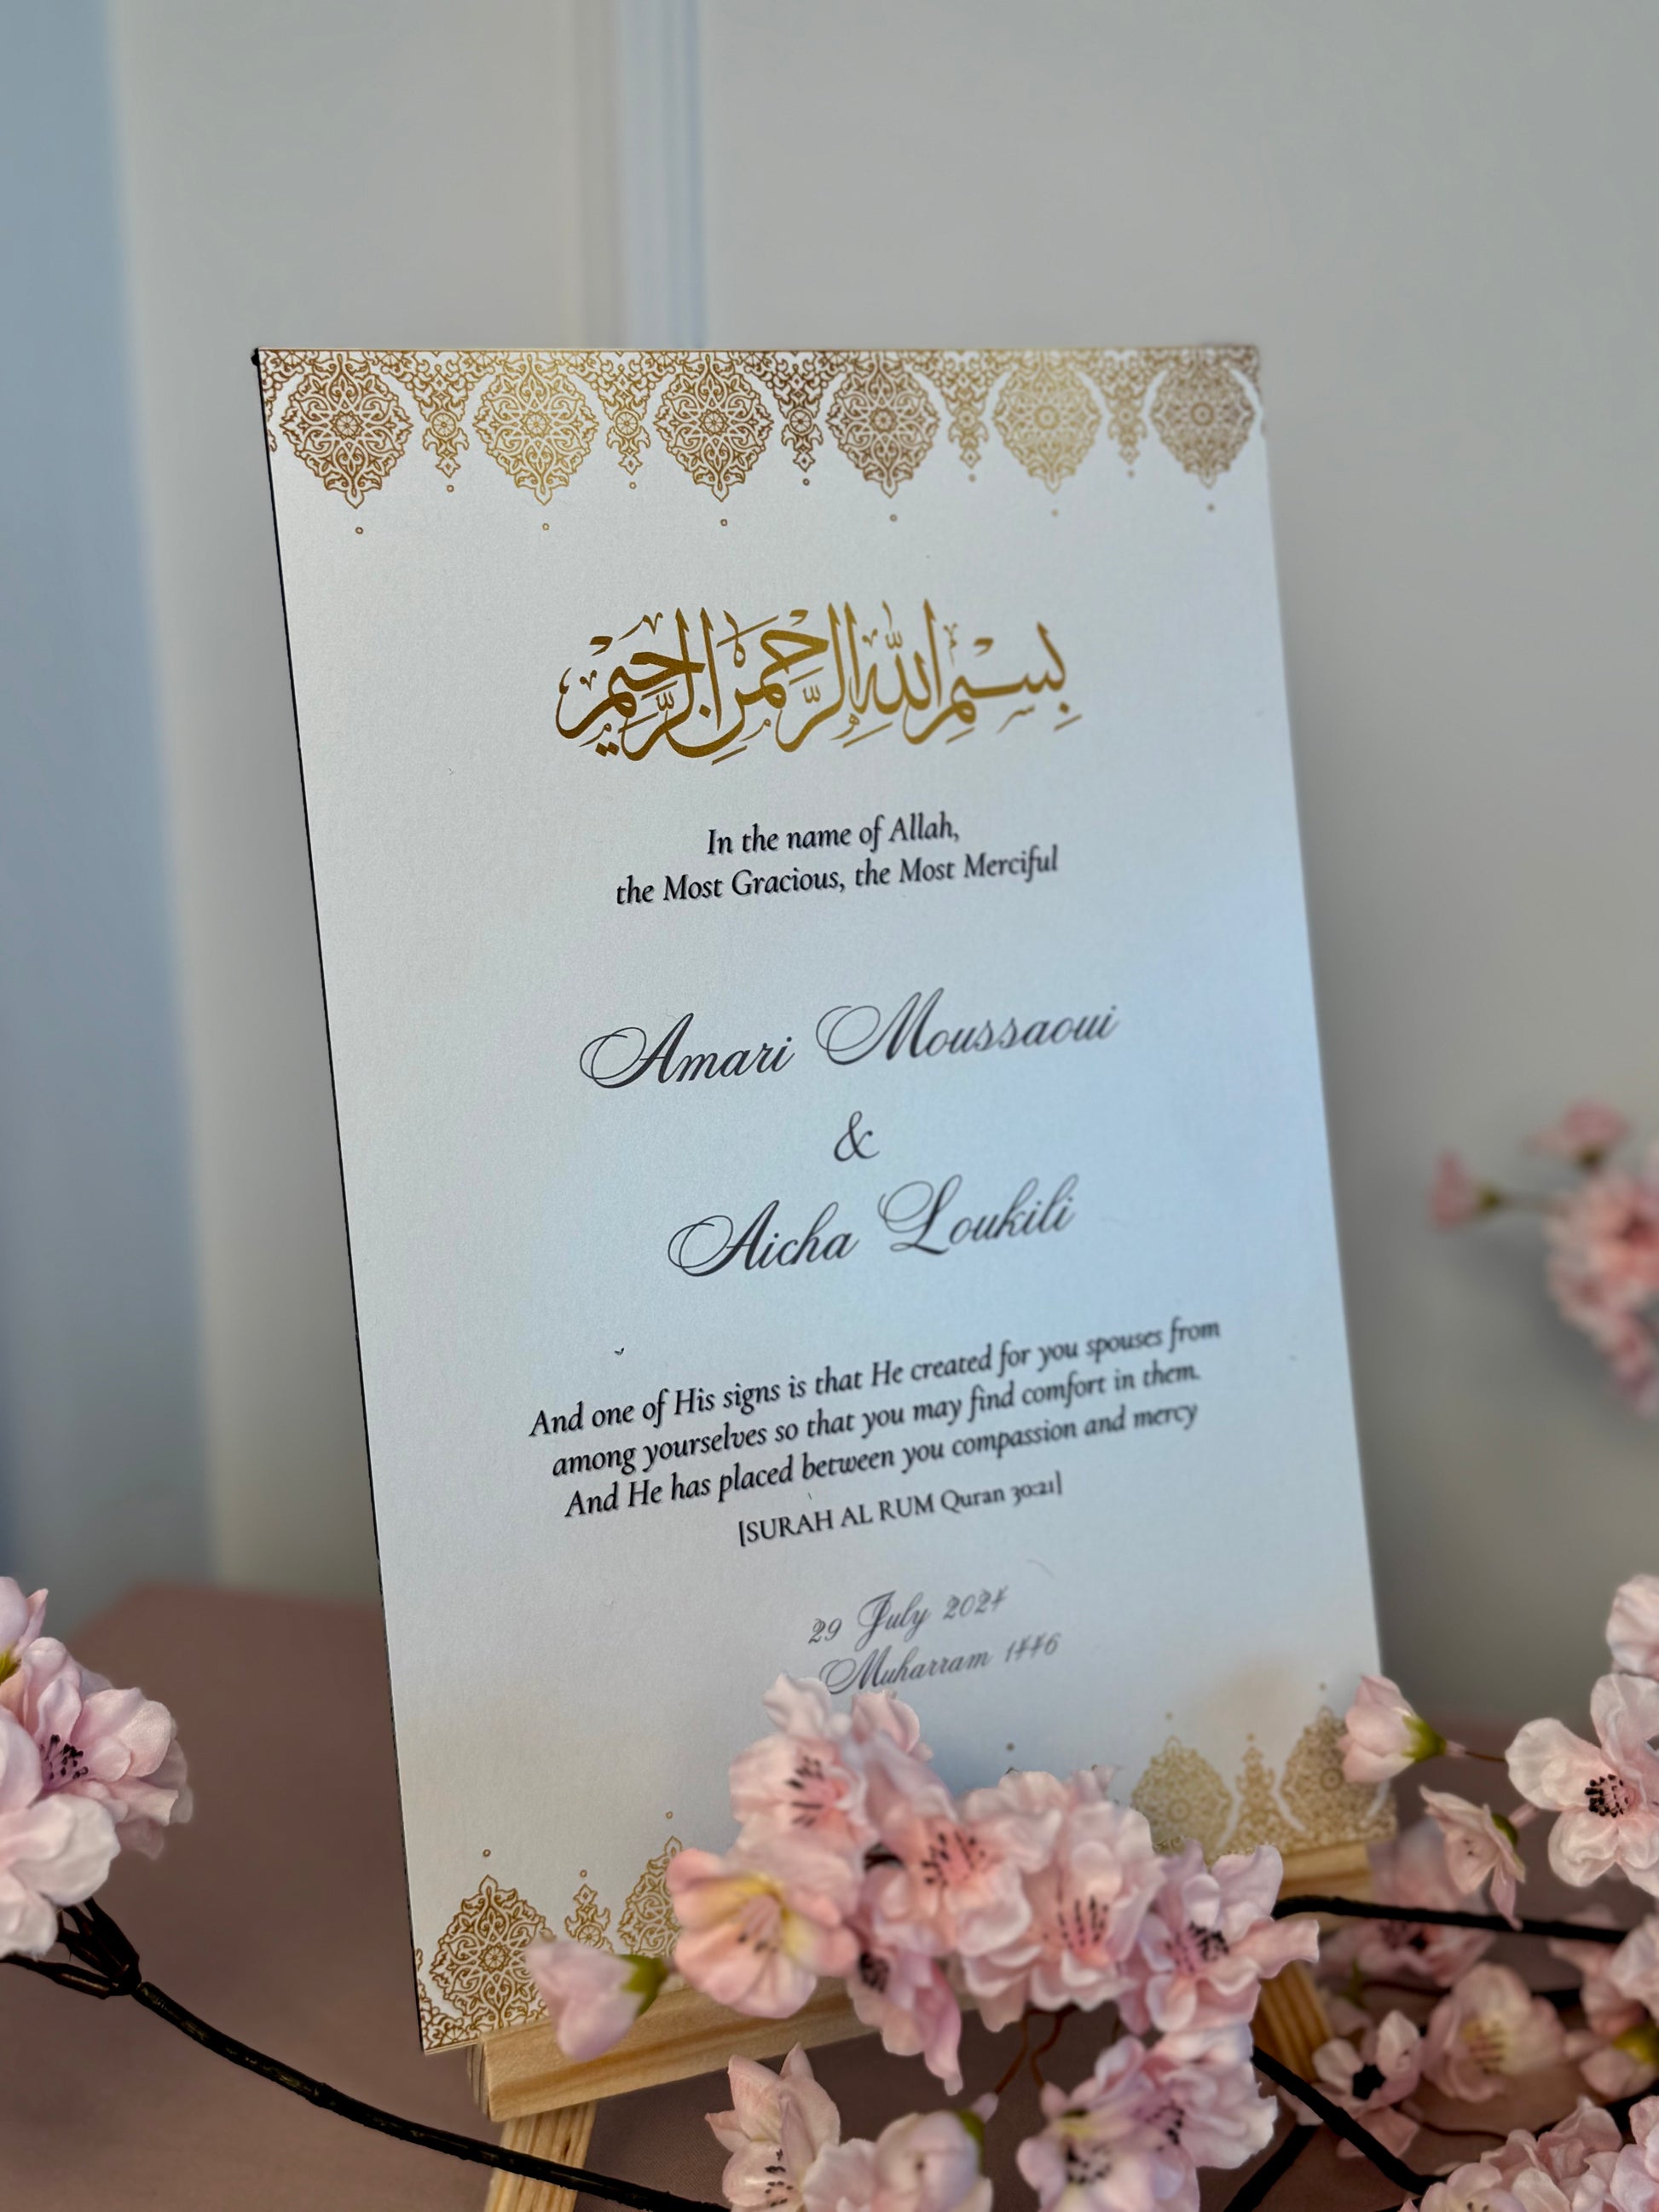 بِسْمِ اللهِ الرَّحْمٰنِ الرَّحِيْمِ
In the name of Allah,
the Most Gracious, the Most Merciful
Amari Moussaoui
&
Aicha Loukili
And one of His signs is that He created for you spouses from
among yourselves so that you may find comfort in them.
And He has placed between you compassion and mercy
[SURAH AL RUM Quran 30:21]
29 July 2024
Muharram 1446